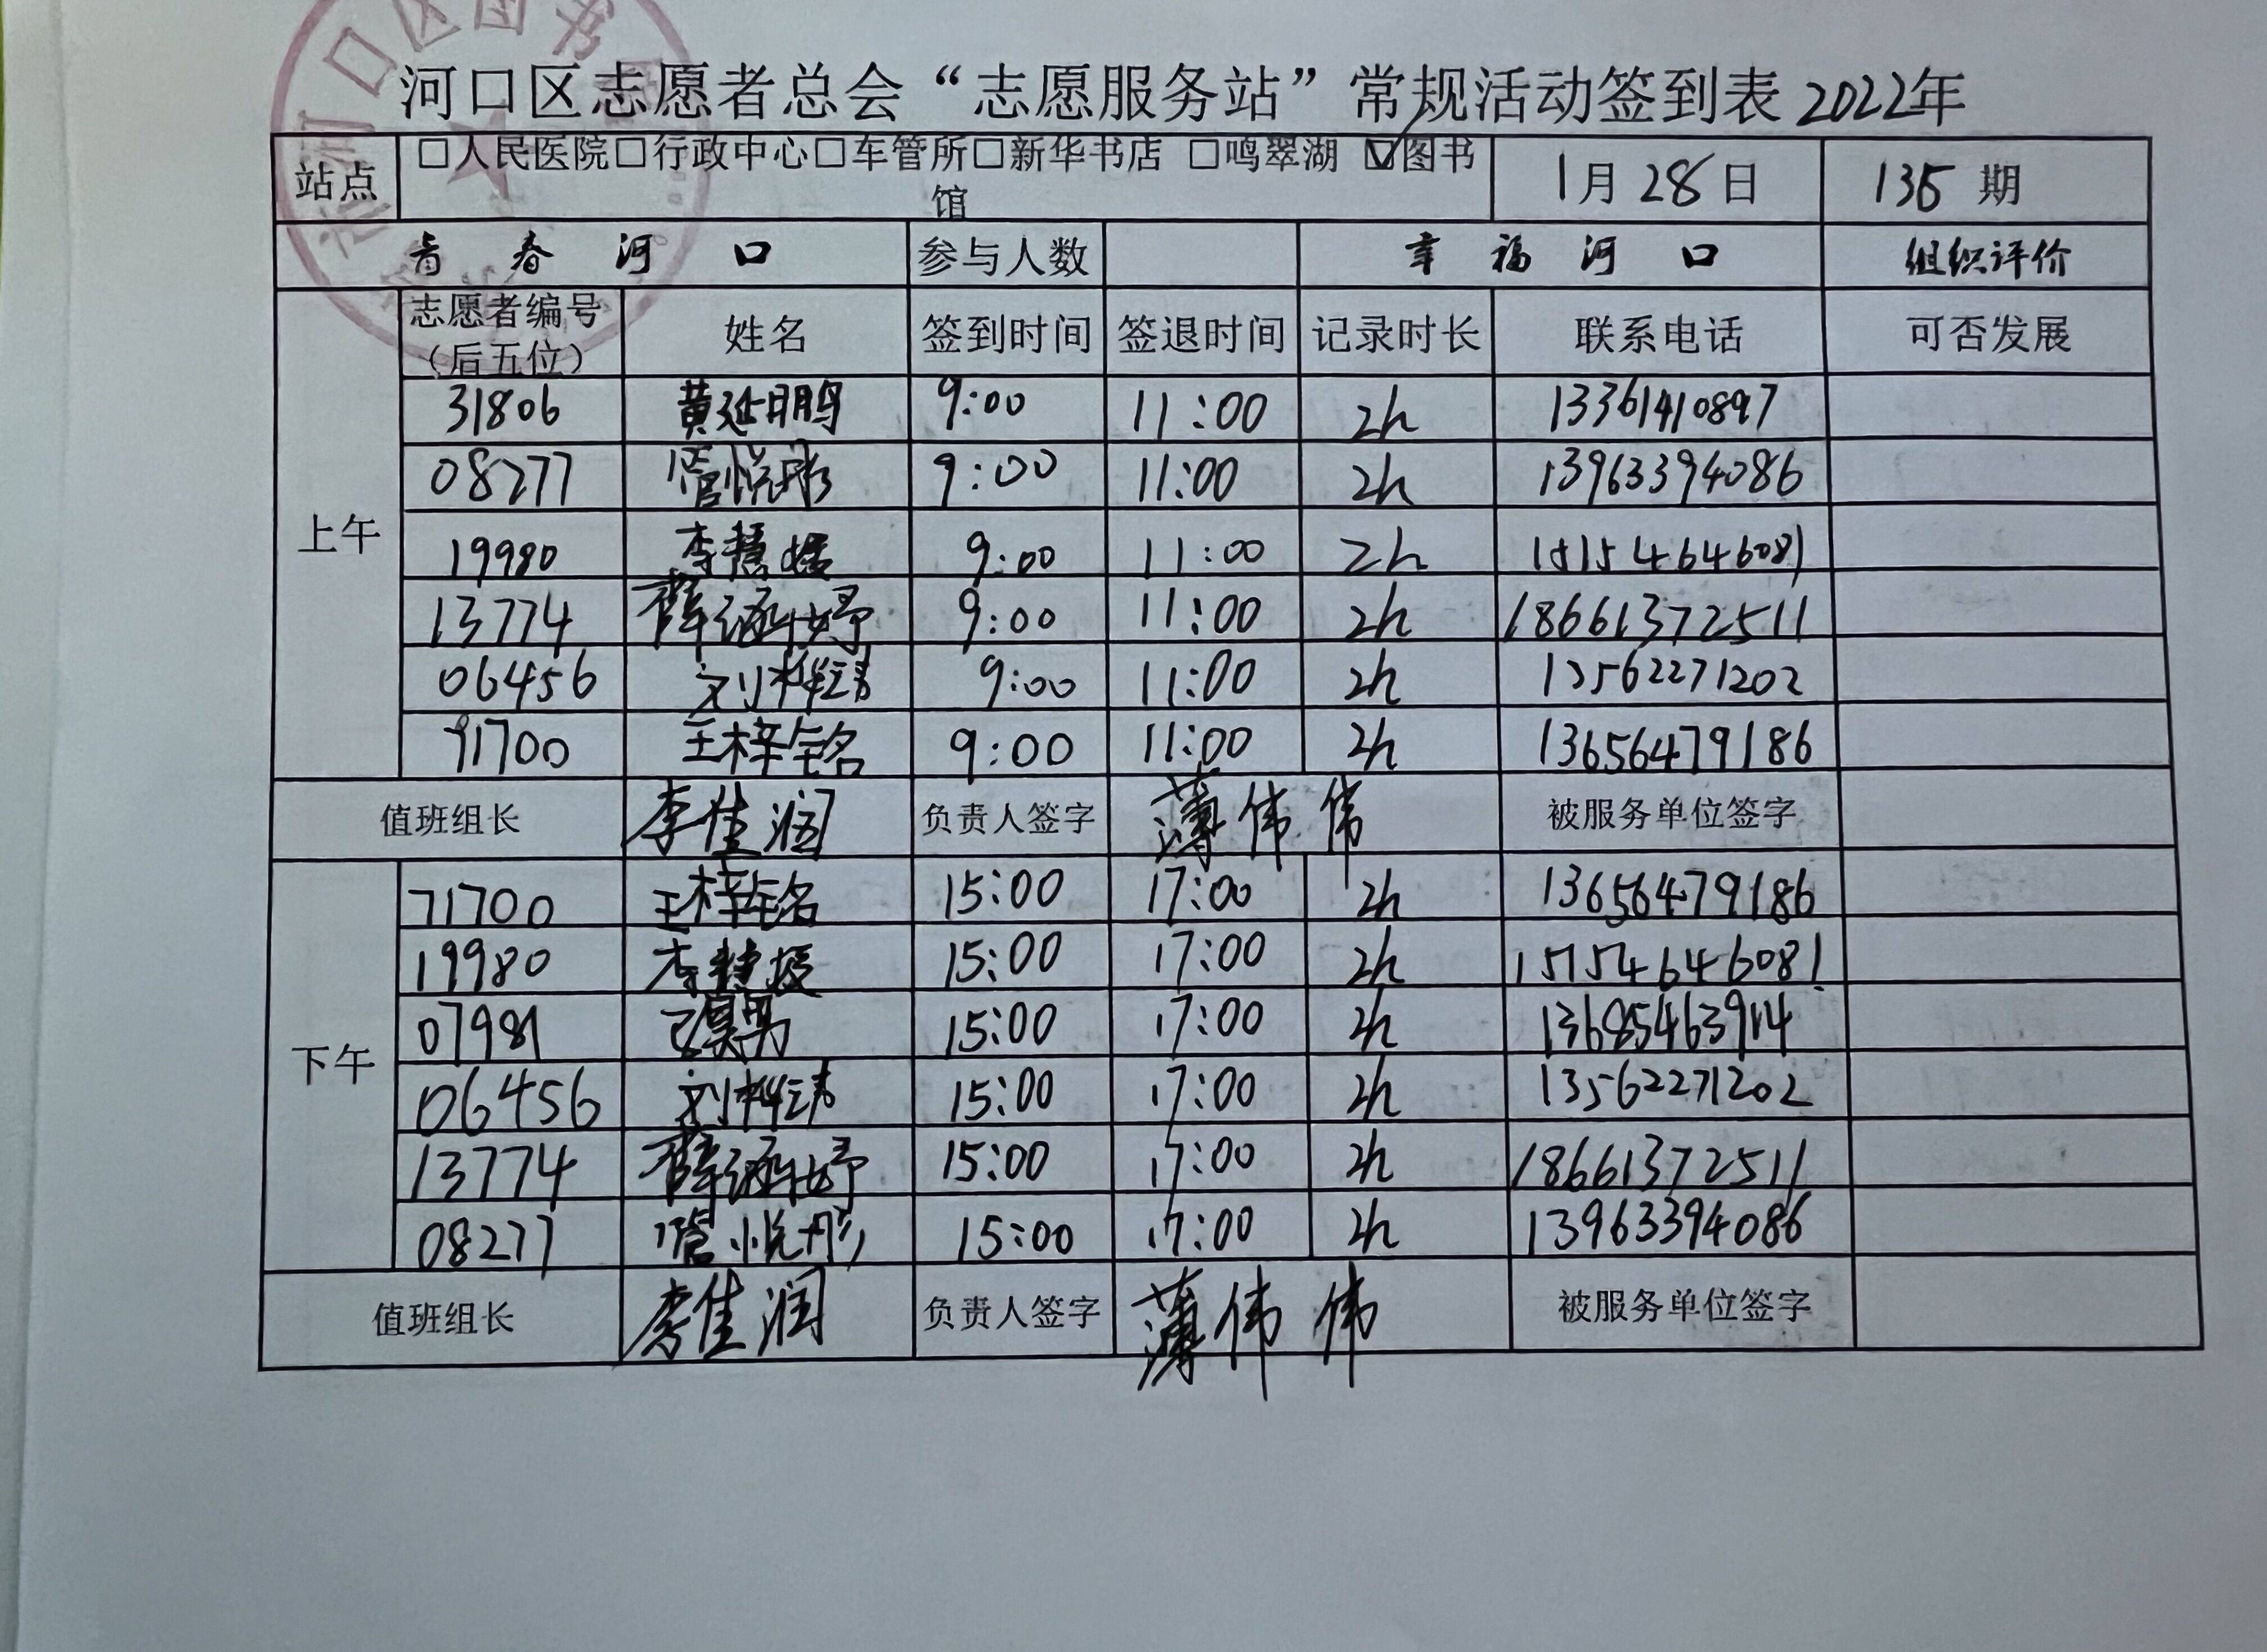 河口区志愿者总会“志愿服务站”常规活动签到表 2022年
站点 □人民医院□行政中心□车管所□新华书店 □鸣翠湖 ☑图书馆 1月28日 135 期
青春河口 参与人数 幸福河口 组织评价
上午 志愿者编号（后五位） 姓名 签到时间 签退时间 记录时长 联系电话 可否发展
31806 黄延鹏 9:00 11:00 2h 13361410897
08277 管悦彤 9:00 11:00 2h 13963394086
19980 李慧媛 9:00 11:00 2h 15154646081
13774 薛涵妤 9:00 11:00 2h 18661372511
06456 刘梓玮 9:00 11:00 2h 13562271202
91700 王梓铭 9:00 11:00 2h 13656479186
值班组长 李佳润 负责人签字 薄伟伟 被服务单位签字
下午 71700 王梓铭 15:00 17:00 2h 13656479186
19980 李慧媛 15:00 17:00 2h 15154646081
07981 15:00 17:00 2h 13685463914
06456 刘梓玮 15:00 17:00 2h 13562271202
13774 薛涵妤 15:00 17:00 2h 18661372511
08277 管悦彤 15:00 17:00 2h 13963394086
值班组长 李佳润 负责人签字 薄伟伟 被服务单位签字